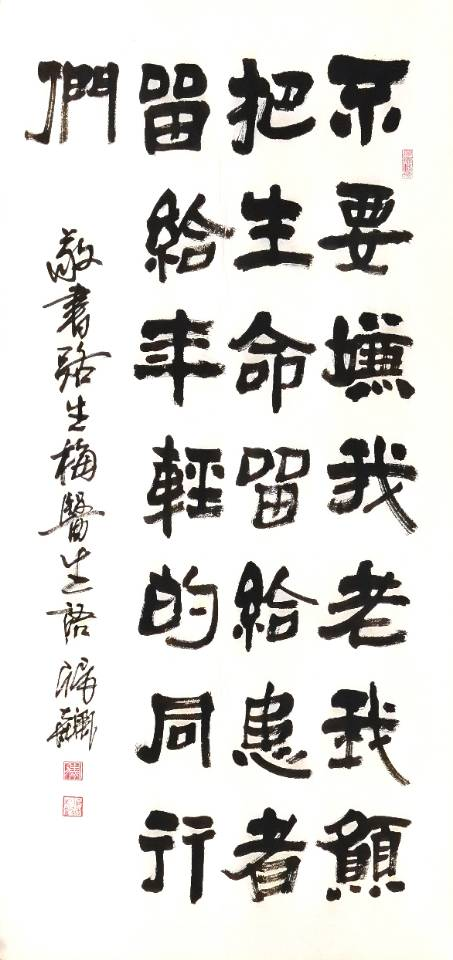 不要嫌我老我願
把生命留給患者
留給年輕的同行
們
敬書路生梅醫生語